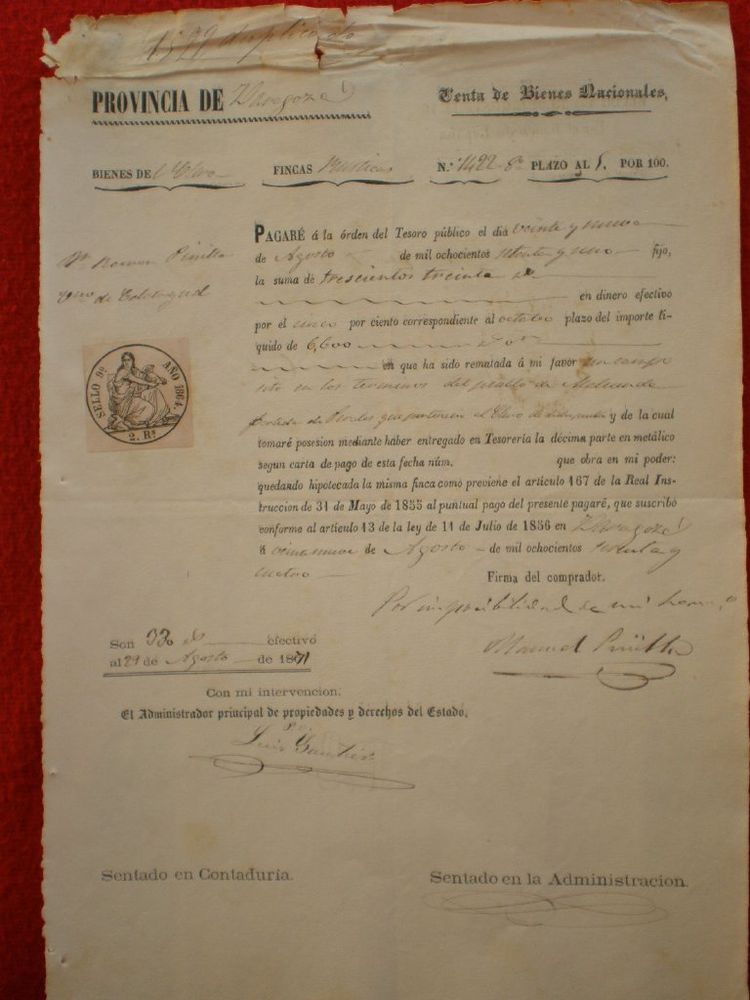 duplicado
PROVINCIA DE Zaragoza
Venta de Bienes Nacionales.
BIENES DEl Clero
FINCAS Rusticas
N.º 1422 8º PLAZO AL 5 POR 100.
Dn Ramon Pinilla
de Calatayud
PAGARÉ á la órden del Tesoro público el dia veinte y nueve
de Agosto de mil ochocientos setenta y uno fijo,
la suma de trescientos treinta
en dinero efectivo
por el cinco por ciento correspondiente al octavo plazo del importe lí-
quido de 6,600
en que ha sido rematada á mi favor un campo
sito en los terminos del pueblo de
y de la cual
tomaré posesion mediante haber entregado en Tesorería la décima parte en metálico
segun carta de pago de esta fecha núm. que obra en mi poder:
quedando hipotecada la misma finca como previene el artículo 167 de la Real Ins-
truccion de 31 de Mayo de 1855 al puntual pago del presente pagaré, que suscribo
conforme al artículo 13 de la ley de 11 de Julio de 1856 en Zaragoza
á de Agosto de mil ochocientos sesenta y
cuatro
SELLO 9º AÑO 1864.
2. Rs
Firma del comprador.
Por imposibilidad de mi
Manuel Pinilla
Son 330 efectivo
al 29 de Agosto de 1871
Con mi intervencion.
El Administrador principal de propiedades y derechos del Estado,
Luis
Sentado en Contaduría.
Sentado en la Administracion.